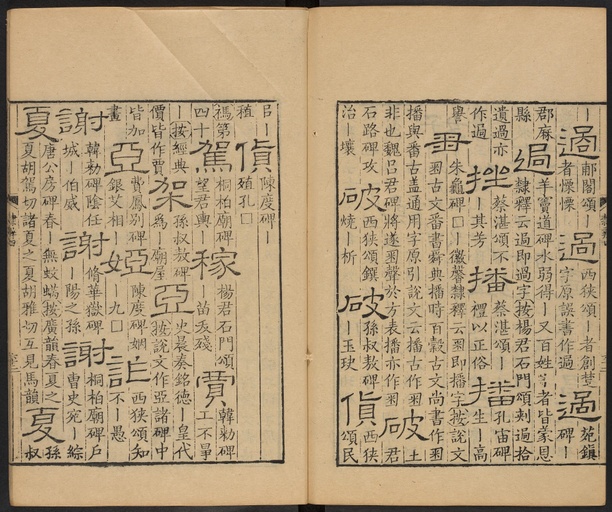 ｜過郙閣頌｜者慄慄過西狹頌｜者創楚字原誤書作過過苑鎮碑｜
郡麻縣過羊竇道碑水弱得｜又百姓｜者皆蒙恩隸釋云過即過字按楊君石門頌刾過拾
遺過亦作過挫蔡湛頌不｜其芳播蔡湛頌｜禮以正俗播孔宙碑生｜高
譽朱龜碑□｜徽馨隸釋云䍶即播字按說文䍶古文番書舜典播時百穀古文尚書作䍶
播與番古蓋通用字原引說文云播古作䍶非也魏呂君碑將遂䍶聲於方表播亦作䍶破土君
石路碑攻治｜壞破西狹頌鐉燒｜析破孫叔敖碑｜玉玦貨西狹頌民
㠯｜殖貨陳度碑｜殖孔□
禡第四十駕桐柏廟碑望君輿｜稼楊君石門頌｜苗夭殘賈韓勑碑工不畢
｜按經典價皆作賈架孫叔敖碑爲｜廟屋亞史晨奏銘德｜皇代按說文作亞諸碑中
皆加畫亞費鳳別碑銀艾相｜婭陳度碑姻｜九□詐西狹頌知不｜愚
謝韓勑碑陰任城｜伯威謝脩華嶽碑｜陽之孫謝桐柏廟碑戶曹史宛｜綜
夏唐公房碑春｜無蚊蟆按廣韻春夏之夏胡駕切諸夏之夏胡雅切互見馬韻夏孫叔